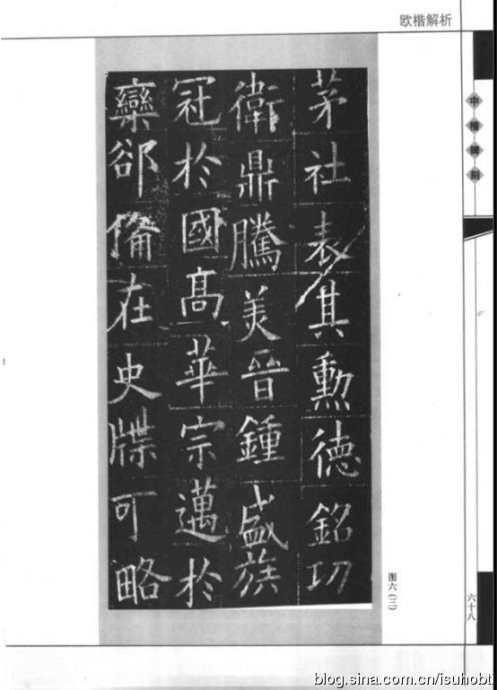 欧楷解析
茅社表其勳德銘功
衛鼎騰美晉鍾盛族
冠於國高華宗邁於
欒郤備在史牒可略
图六(三)
六十八
blog.sina.com.cn/isuhobt